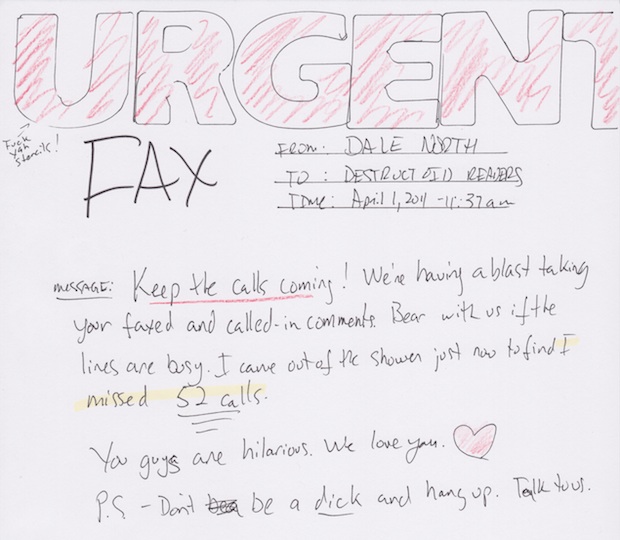 URGENT
Fuck
yah
stencils!
FAX
FROM: DALE NORTH
TO: DESTRUCTOID READERS
TIME: April 1, 2011 - 11:37am
MESSAGE: Keep the calls coming! We're having a blast taking
your faxed and called-in comments. Bear with us if the
lines are busy. I came out of the shower just now to find I
missed 52 calls.
You guys are hilarious. We love you.
P.S. - Don't be a dick and hang up. Talk to us.